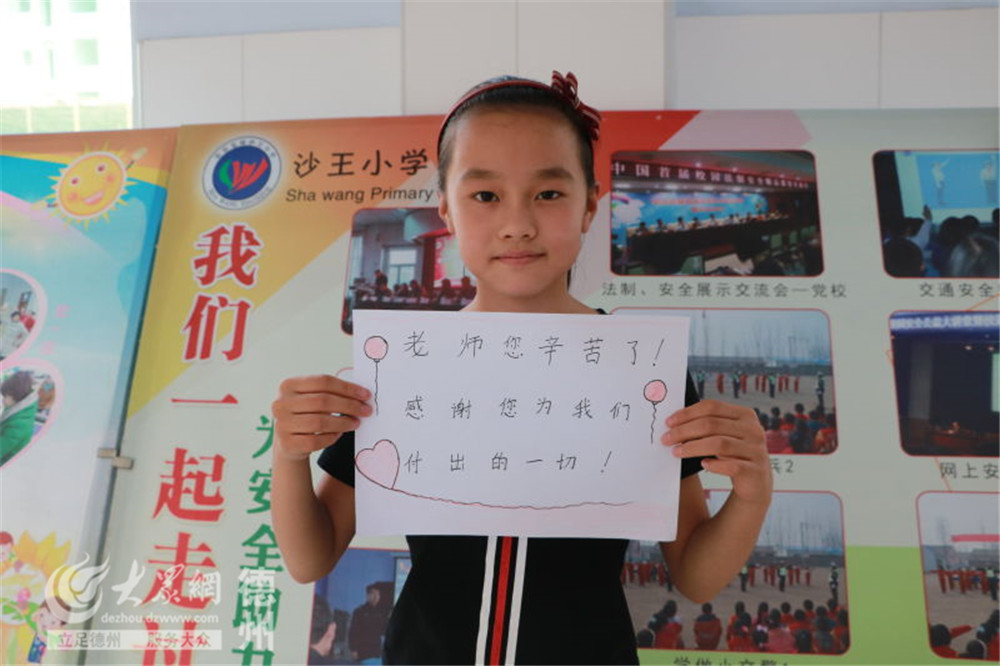 沙王小学
Sha wang Primary
我们一起走过
为安全
中国首届校园
法制、安全展示交流会—党校
交通安全
老师您辛苦了！
感谢您为我们
付出的一切！
兵2
网上安
学做小交警1
大众網
德州
dezhou.dzwww.com
立足德州 服务大众